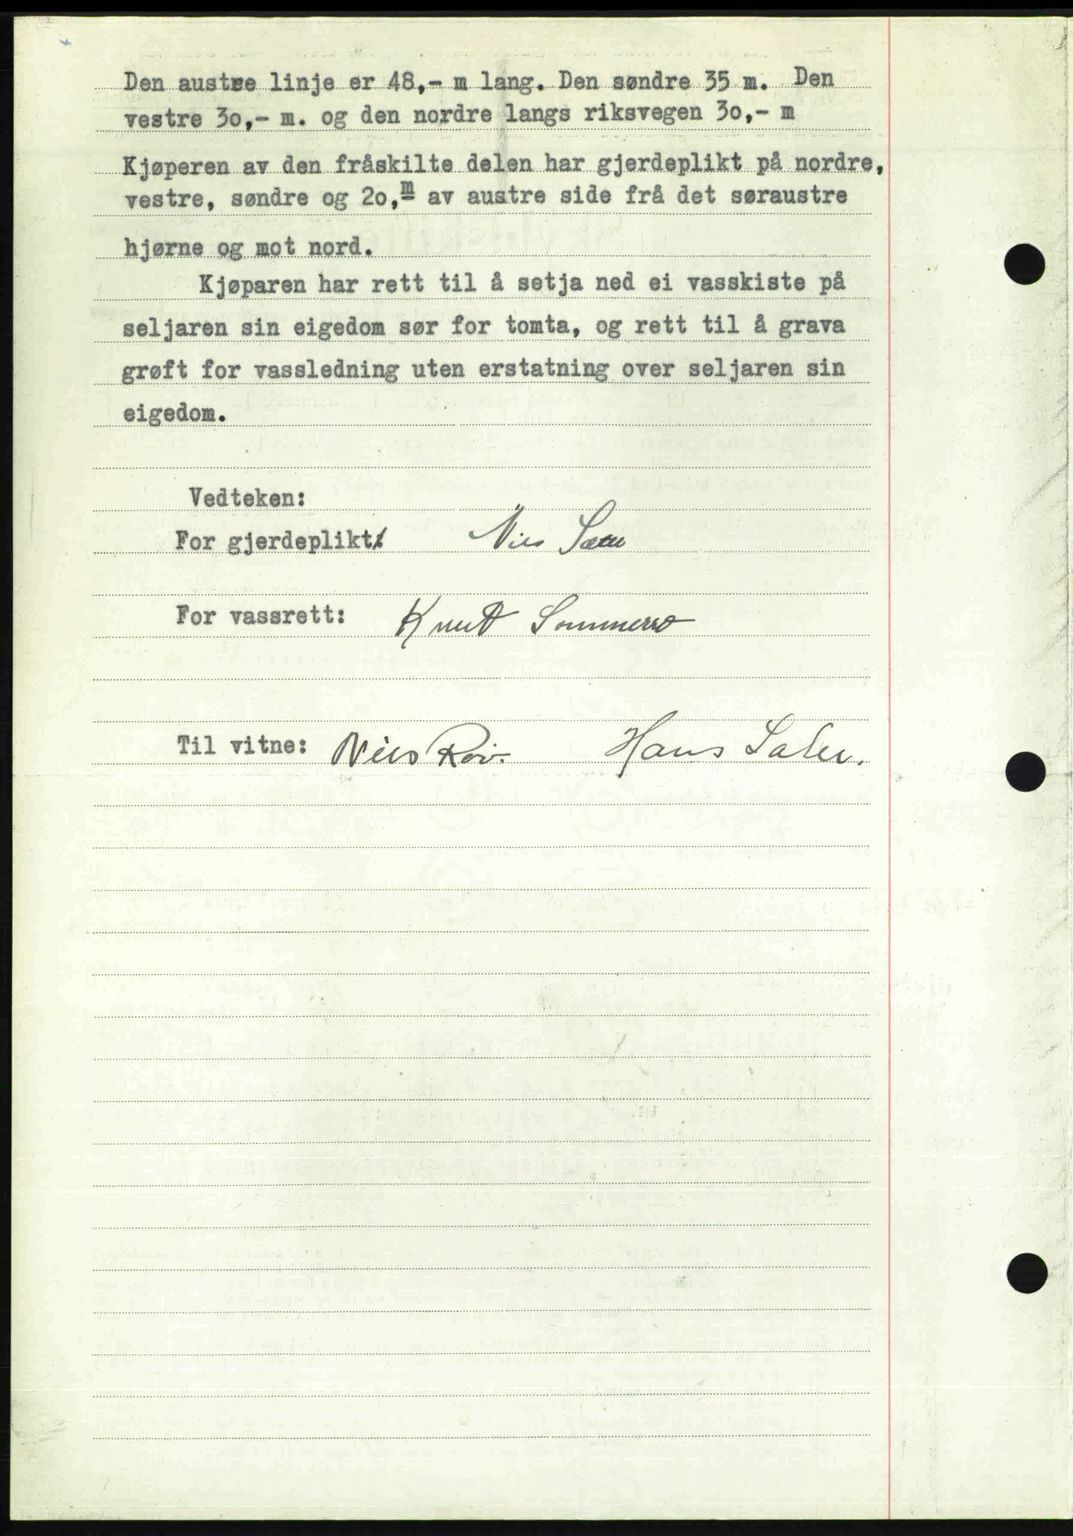 Den austre linje er 48,- m lang. Den søndre 35 m. Den
vestre 3o,- m. og den nordre langs riksvegen 3o,- m
Kjøperen av den fråskilte delen har gjerdeplikt på nordre,
vestre, søndre og 2o,m av austre side frå det søraustre
hjørne og mot nord.
Kjøparen har rett til å setja ned ei vasskiste på
seljaren sin eigedom sør for tomta, og rett til å grava
grøft for vassledning uten erstatning over seljaren sin
eigedom.
Vedteken:
For gjerdeplikt: Nils
For vassrett: Knut Sommerro
Til vitne: Nils Hans